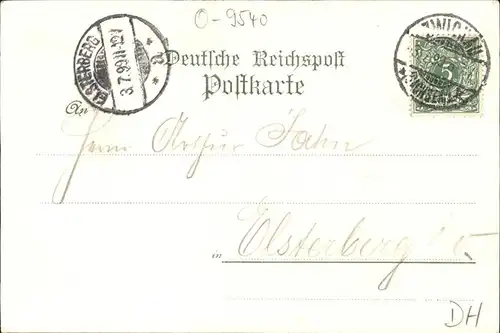 O-9540
ZWICKAU
ELSTERBERG
3.7.99.11-12V
* a *
5
Deutsche Reichspost
Postkarte
An
Herrn Arthur Jahn
in Elsterberg
DH